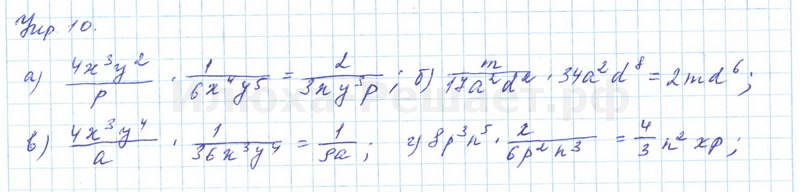 Упр 10.
а) \frac{4x^3y^2}{p} \cdot \frac{1}{6x^4y^5} = \frac{2}{3xy^3p}; б) \frac{m}{17a^2d^2} \cdot 34a^2d^8 = 2md^6;
в) \frac{4x^3y^4}{a} \cdot \frac{1}{36x^3y^4} = \frac{1}{9a}; г) 8p^3n^5 \cdot \frac{2}{6p^2n^3} = \frac{4}{3}n^2xp;